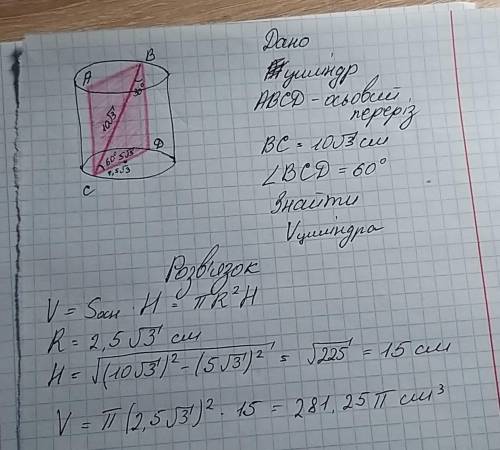 B
A
30°
10√3
60° 5√3
2,5√3
D
C
Дано
циліндр
ABCD - осьовий
переріз
BC = 10√3 см
∠BCD = 60°
Знайти
Vциліндра
Розв'язок
V = Sосн · H = πR²H
R = 2,5√3 см
H = √(10√3)² - (5√3)² = √225 = 15 см
V = π(2,5√3)² · 15 = 281,25π см³